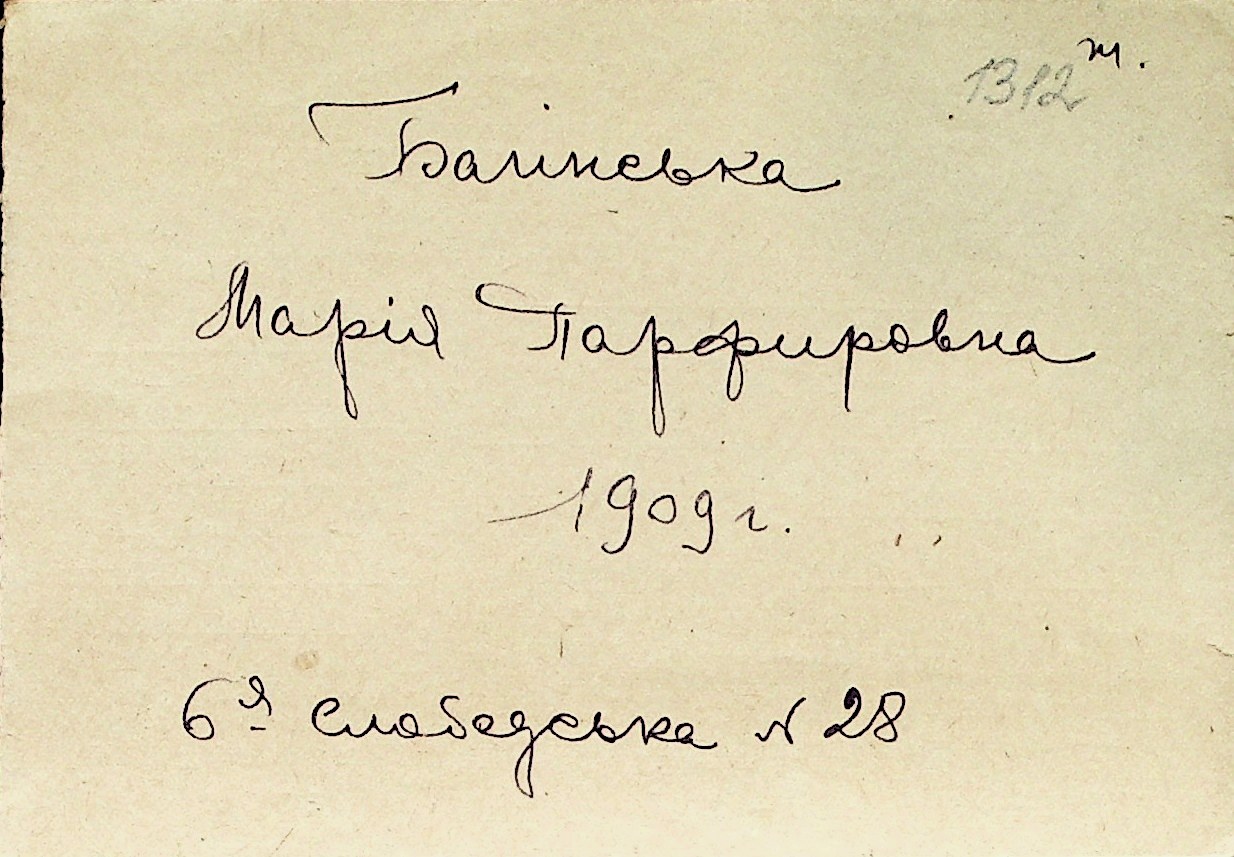 1312 т.
Балінська
Марія Парфировна
1909 г.
6я Слободська N 28